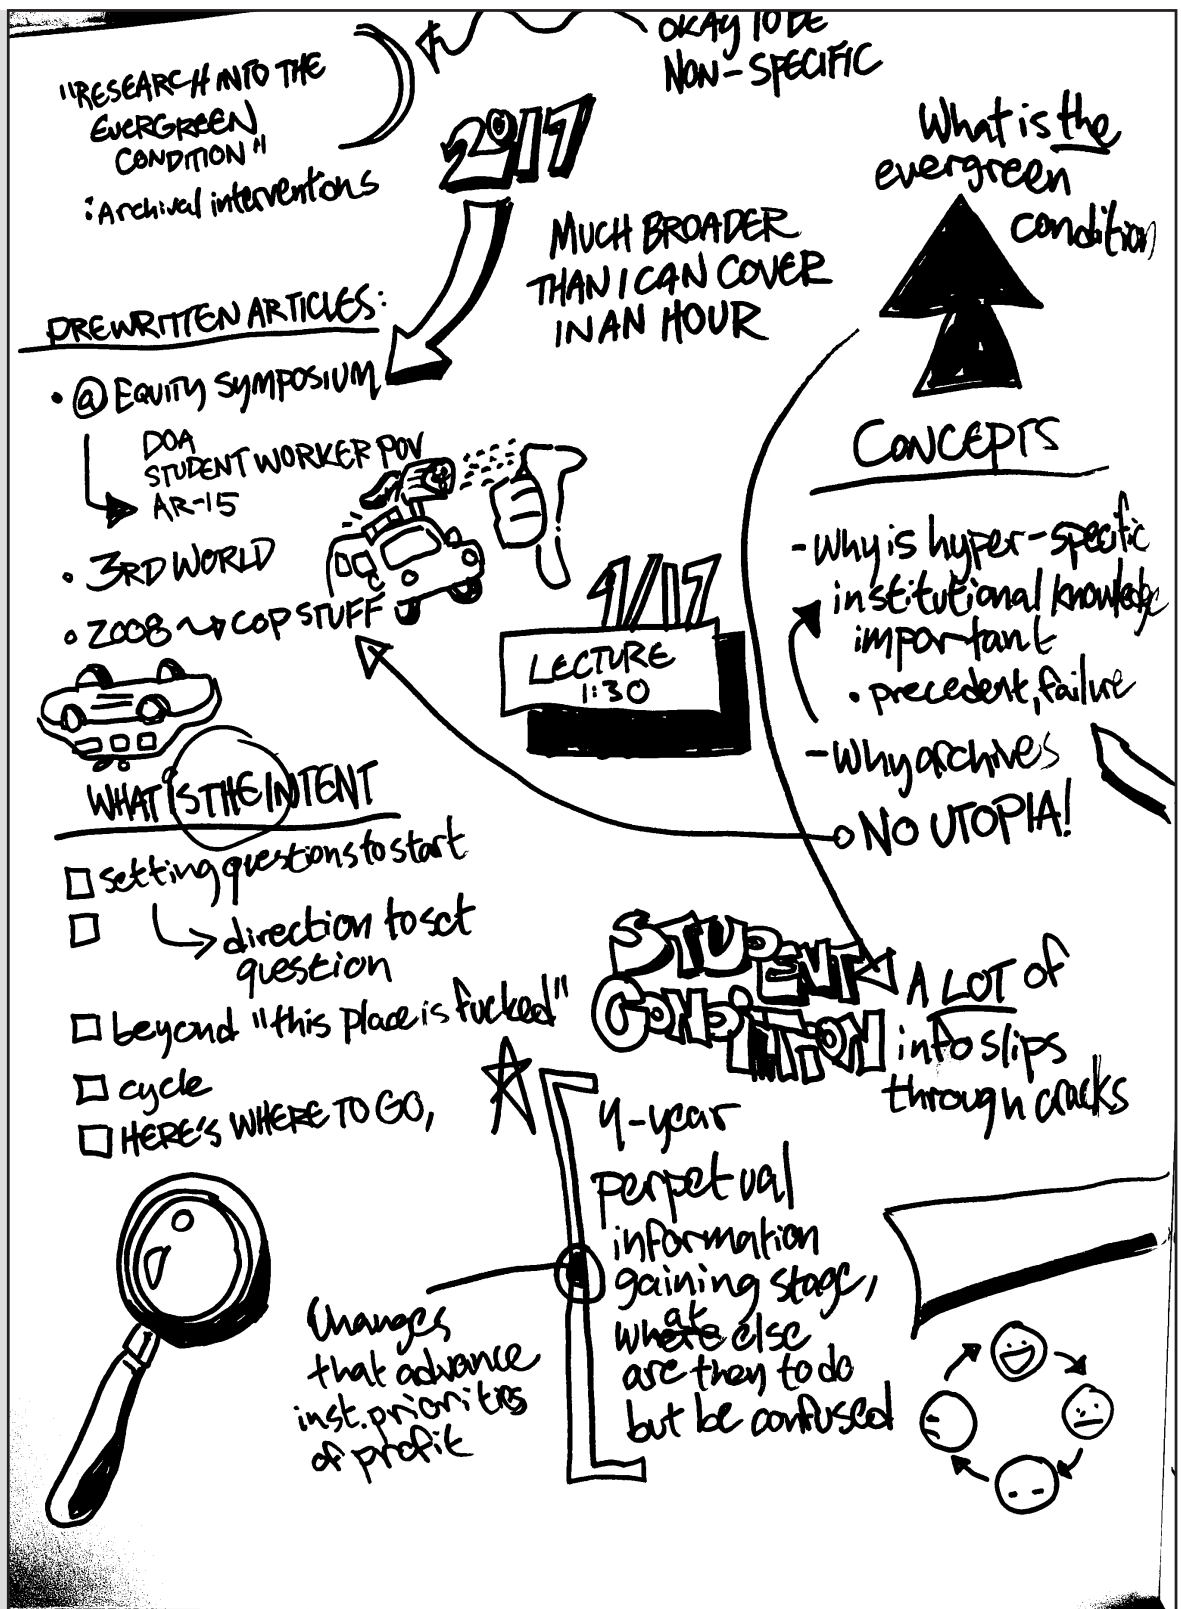 "RESEARCH INTO THE
EVERGREEN
CONDITION"
: Archival interventions
OKAY TO BE
NON-SPECIFIC
2017
MUCH BROADER
THAN I CAN COVER
IN AN HOUR
What is the
evergreen
condition
PREWRITTEN ARTICLES:
• @ EQUITY SYMPOSIUM
DOA
STUDENT WORKER POV
AR-15
• 3RD WORLD
• 2008 → COP STUFF
4/17
LECTURE
1:30
CONCEPTS
- Why is hyper-specific
institutional knowledge
important
• precedent, failure
- Why archives
NO UTOPIA!
WHAT IS THE INTENT
setting questions to start
direction to set
question
beyond "this place is fucked"
cycle
HERE'S WHERE TO GO,
STUDENT
CONDITION
A LOT of
info slips
through cracks
4-year
perpetual
information
gaining stage,
what else
are they to do
but be confused
Changes
that advance
inst. priorities
of profit